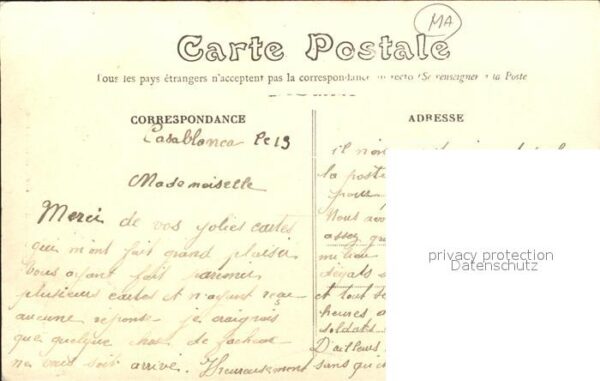 MA
Carte Postale
Tous les pays étrangers n'acceptent pas la correspondance au recto (Se renseigner à la Poste
CORRESPONDANCE
Casablanca le 19
Mademoiselle
Merci de vos jolies cartes
qui m'ont fait grand plaisir
Vous ayant fait parvenir
plusieurs cartes et n'ayant reçu
aucune réponse je craignais
que quelque chose de facheux
ne vous soit arrivé. Heureusement
ADRESSE
il n'en
la poste
pour
Nous
assez
milieu
dégats
et tout
heures
soldats
D'ailleurs
sans
privacy protection
Datenschutz